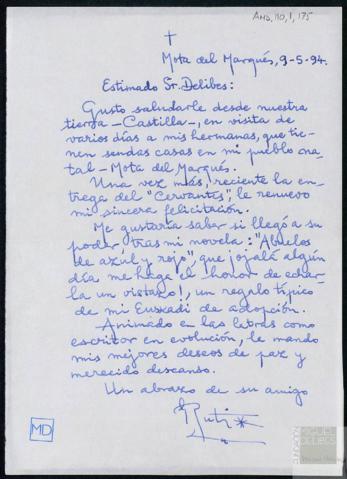 AMD, 110, 1, 175
Mota del Marqués, 9-5-94.
Estimado Sr. Delibes:
Gusto saludarle desde nuestra
tierra -Castilla-, en visita de
varios días a mis hermanas, que tie-
nen sendas casas en mi pueblo na-
tal -Mota del Marqués.
Una vez más, reciente la en-
trega del "Cervantes", le renuevo
mi sincera felicitación.
Me gustaría saber si llegó a su
poder tras mi novela: "Abuelos
de azul y rojo", que ¡ojalá algún
día me haga el honor de echar-
la un vistazo!, un regalo típico
de mi Euskadi de adopción.
Animado en las letras como
escritor en evolución, le mando
mis mejores deseos de paz y
merecido descanso.
Un abrazo de su amigo
MD
FUNDACIÓN
MIGUEL
DELIBES